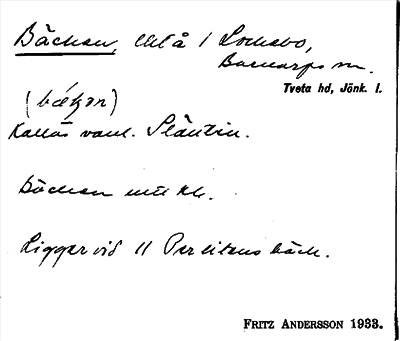 Bäcken, ått å / Lockebo,
Barnarps sn.
Tveta hd, Jönk. l.
(bækən)
Kallas vanl. Släntin.
Bäcken
Ligger vid 11 Per litens bäck.
FRITZ ANDERSSON 1933.